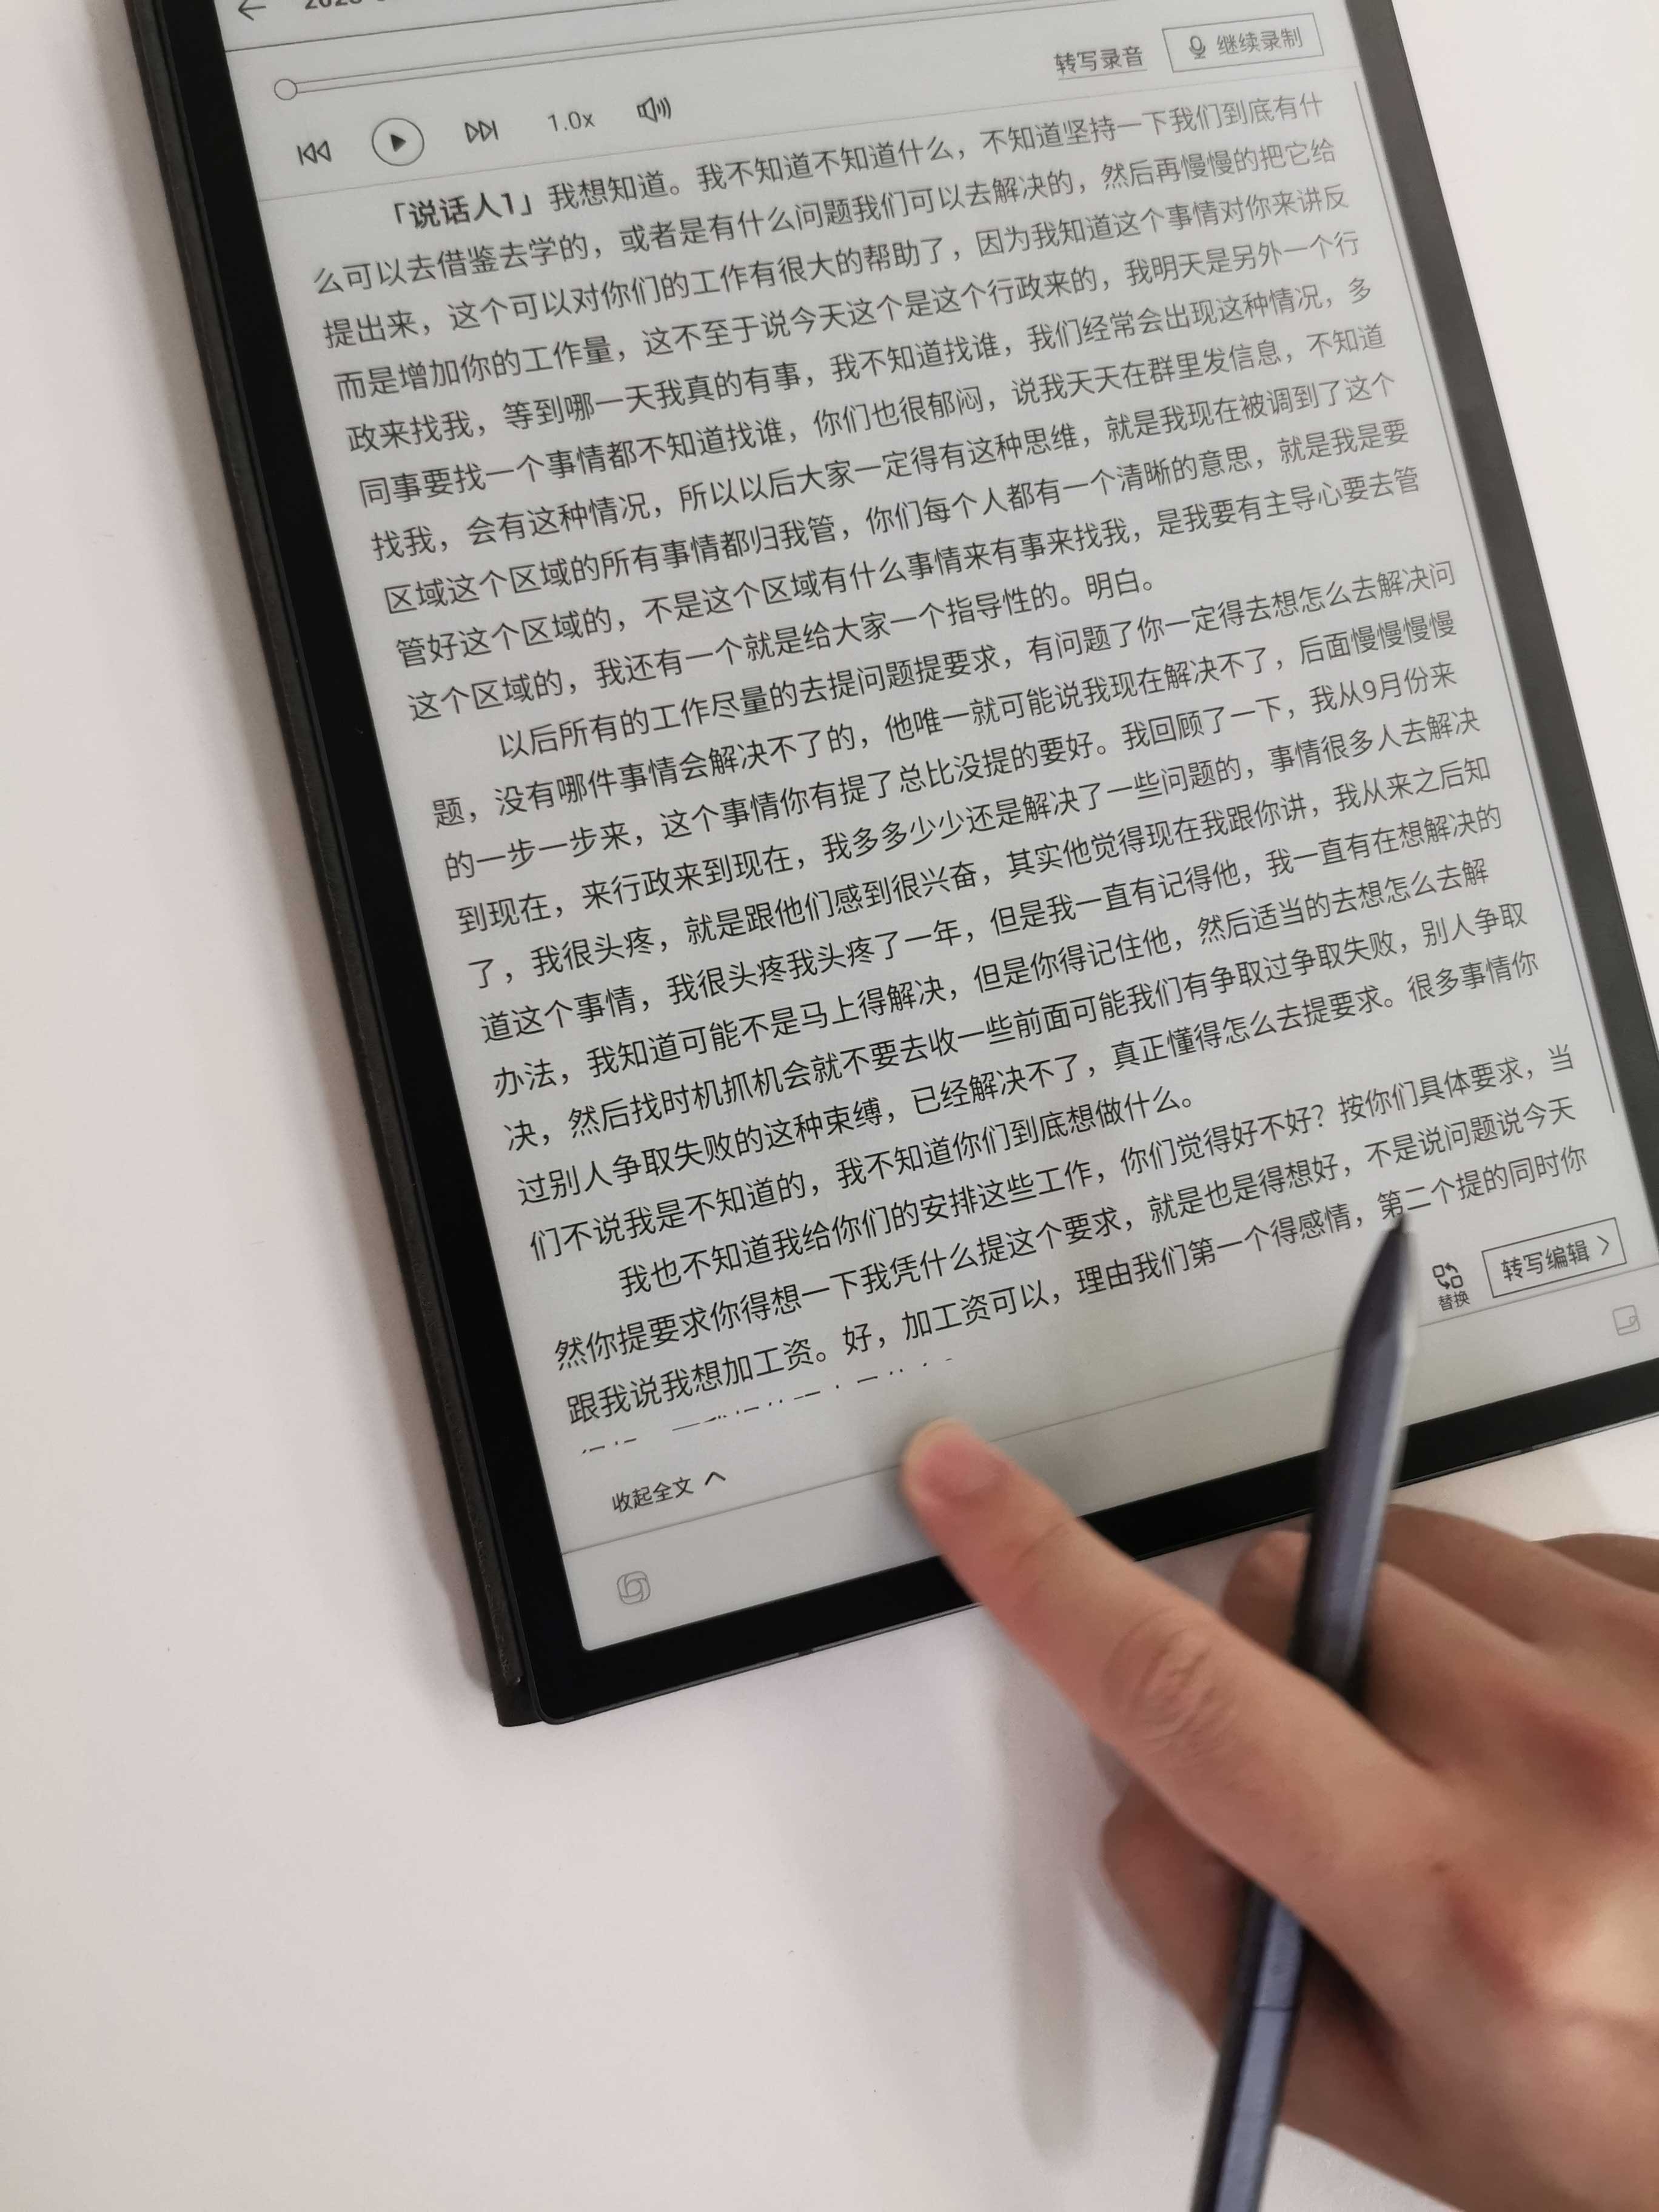 转写录音 继续录制
1.0x
「说话人1」我想知道。我不知道不知道什么，不知道坚持一下我们到底有什
么可以去借鉴去学的，或者是有什么问题我们可以去解决的，然后再慢慢的把它给
提出来，这个可以对你们的工作有很大的帮助了，因为我知道这个事情对你来讲反
而是增加你的工作量，这不至于说今天这个是这个行政来的，我明天是另外一个行
政来找我，等到哪一天我真的有事，我不知道找谁，我们经常会出现这种情况，多
同事要找一个事情都不知道找谁，你们也很郁闷，说我天天在群里发信息，不知道
找我，会有这种情况，所以以后大家一定得有这种思维，就是我现在被调到了这个
区域这个区域的所有事情都归我管，你们每个人都有一个清晰的意思，就是我是要
管好这个区域的，不是这个区域有什么事情来有事来找我，是我要有主导心要去管
这个区域的，我还有一个就是给大家一个指导性的。明白。
以后所有的工作尽量的去提问题提要求，有问题了你一定得去想怎么去解决问
题，没有哪件事情会解决不了的，他唯一就可能说我现在解决不了，后面慢慢慢慢
的一步一步来，这个事情你有提了总比没提的要好。我回顾了一下，我从9月份来
到现在，来行政来到现在，我多多少少还是解决了一些问题的，事情很多人去解决
了，我很头疼，就是跟他们感到很兴奋，其实他觉得现在我跟你讲，我从来之后知
道这个事情，我很头疼我头疼了一年，但是我一直有记得他，我一直有在想解决的
办法，我知道可能不是马上得解决，但是你得记住他，然后适当的去想怎么去解
决，然后找时机抓机会就不要去收一些前面可能我们有争取过争取失败，别人争取
过别人争取失败的这种束缚，已经解决不了，真正懂得怎么去提要求。很多事情你
们不说我是不知道的，我不知道你们到底想做什么。
我也不知道我给你们的安排这些工作，你们觉得好不好？按你们具体要求，当
然你提要求你得想一下我凭什么提这个要求，就是也是得想好，不是说问题说今天
跟我说我想加工资。好，加工资可以，理由我们第一个得感情，第二个提的同时你
替换 转写编辑
收起全文